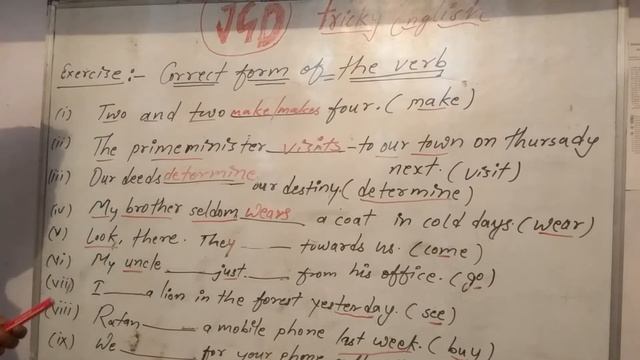 JGD tricky english
Exercise:- Correct form of the verb
(i) Two and two make/makes four. (make)
(ii) The primeminister visits to our town on thursady
next. (visit)
(iii) Our deeds determine our destiny. (determine)
(iv) My brother seldom wears a coat in cold days. (wear)
(v) Look, there. They ___ towards us. (come)
(vi) My uncle ___ just ___ from his office. (go)
(vii) I ___ a lion in the forest yesterday. (see)
(viii) Ratan ___ a mobile phone last week. (buy)
(ix) We ___ for your phone